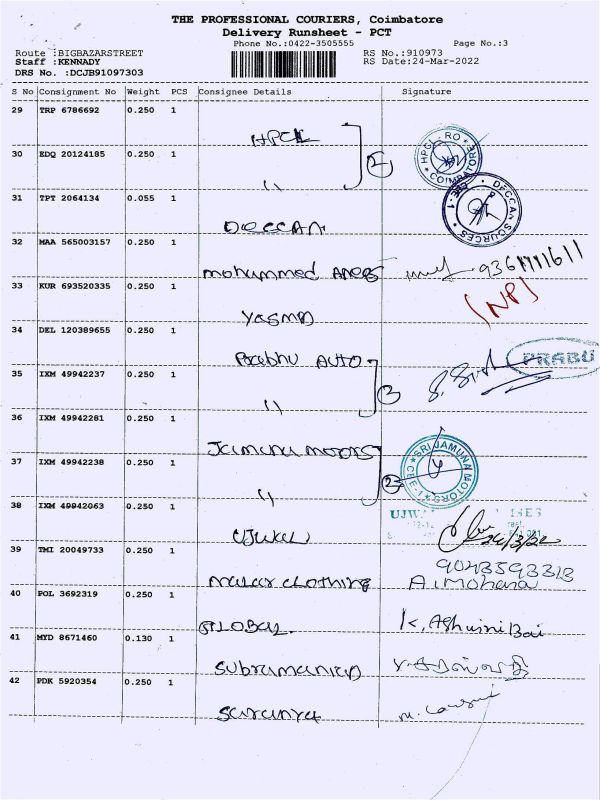 THE PROFESSIONAL COURIERS, Coimbatore
Delivery Runsheet - PCT
Phone No.:0422-3505555
Page No.:3
Route :BIGBAZARSTREET
RS No.:910973
Staff :KENNADY
RS Date:24-Mar-2022
DRS No. :DCJB91097303
S No Consignment No Weight PCS Consignee Details Signature
29 TRP 6786692 0.250 1
HPCL
HPCL - RO COIMBATORE
30 EDQ 20124185 0.250 1
2
"
31 TPT 2064134 0.055 1
DECCAN SOURCES CBE-1
DECCAN
32 MAA 565003157 0.250 1
mohammed ANEES
33 KUR 693520335 0.250 1
(NP)
Yasmin
34 DEL 120389655 0.250 1
Prabhu AUTO
PRABU
35 IXM 49942237 0.250 1
"
36 IXM 49942281 0.250 1
Jamuna motors
SRI JAMUNA MOTORS CBE-1
37 IXM 49942238 0.250 1
2
"
38 IXM 49942063 0.250 1
UJW
Ujwal
24/3/22
39 TMI 20049733 0.250 1
9043593313
malar clothing A. Mohana
40 POL 3692319 0.250 1
GLOBAL K. Ashwini Bai
41 MYD 8671460 0.130 1
Subramanian
42 PDK 5920354 0.250 1
Saranya